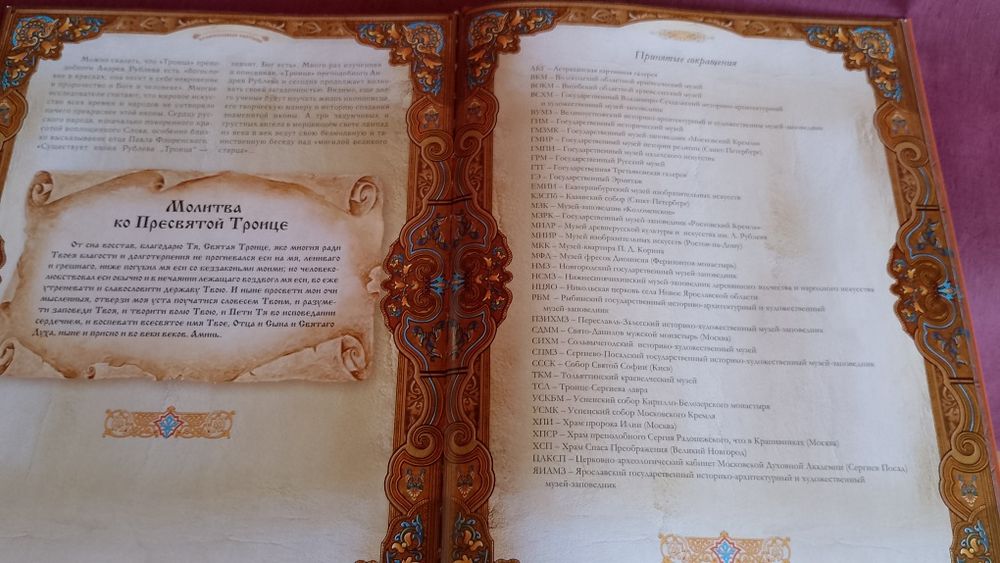 Можно сказать, что «Троица» препо-
добного Андрея Рублева есть «богосло-
вие в красках, она несет в себе откровение
и пророчество о Боге и человеке». Многие
исследователи считают, что мировое искус-
ство всех времен и народов не сотворило
ничего прекраснее этой иконы. Сердцу рус-
ского народа, изначально покоренного кра-
сотой воплощенного Слова, особенно близ-
ко высказывание отца Павла Флоренского:
«Существует икона Рублева „Троица" —
значит, Бог есть». Много раз изученная
и описанная, «Троица» преподобного Ан-
дрея Рублева и сегодня продолжает волно-
вать своей загадочностью. Видимо, еще дол-
го ученые будут изучать жизнь иконописца,
его творческую манеру и историю создания
знаменитой иконы. А три задумчивых и
грустных ангела в мерцающем свете лампад
из века в век ведут свою безмолвную и та-
инственную беседу над «могилой великого
старца»...
Молитва
ко Пресвятой Троице
От сна востав, благодарю Тя, Святая Троице, яко многия ради
Твоея благости и долготерпения не прогневался еси на мя, лениваго
и грешнаго, ниже погубил мя еси со беззаконьми моими; но человеко-
любствовал еси обычно и в нечаянии лежащаго воздвигл мя еси, во еже
утреневати и славословити державу Твою. И ныне просвети мои очи
мысленныя, отверзи моя уста поучатися словесем Твоим, и разуме-
ти заповеди Твоя, и творити волю Твою, и пети Тя во исповедании
сердечнем, и воспевати всесвятое имя Твое, Отца и Сына и Святаго
Духа, ныне и присно и во веки веков. Аминь.
Принятые сокращения
АКГ – Астраханская картинная галерея
ВКМ – Вологодский областной краеведческий музей
ВОКМ – Витебский областной краеведческий музей
ВСХМ – Государственный Владимиро-Суздальский историко-архитектурный
и художественный музей-заповедник
ВУМЗ – Великоустюгский историко-архитектурный и художественный музей-заповедник
ГИМ – Государственный исторический музей
ГМЗМК – Государственный музей-заповедник «Московский Кремль»
ГМИР – Государственный музей истории религии (Санкт-Петербург)
ГМПИ – Государственный музей палехского искусства
ГРМ – Государственный Русский музей
ГТГ – Государственная Третьяковская галерея
ГЭ – Государственный Эрмитаж
ЕМИИ – Екатеринбургский музей изобразительных искусств
КЗСПб – Казанский собор (Санкт-Петербург)
МЗК – Музей-заповедник «Коломенское»
МЗРК – Государственный музей-заповедник «Ростовский Кремль»
МИАР – Музей древнерусской культуры и искусства им. А. Рублева
МИИР – Музей изобразительных искусств (Ростов-на-Дону)
МКК – Музей-квартира П. Д. Корина
МФД – Музей фресок Дионисия (Ферапонтов монастырь)
НМЗ – Новгородский государственный музей-заповедник
НСМЗ – Нижнесинячихинский музей-заповедник деревянного зодчества и народного искусства
НЦЯО – Никольская церковь села Новое Ярославской области
РБМ – Рыбинский государственный историко-архитектурный и художественный
музей-заповедник
ПЗИХМЗ – Переславль-Залесский историко-художественный музей-заповедник
СДММ – Свято-Данилов мужской монастырь (Москва)
СИХМ – Сольвычегодский историко-художественный музей
СПМЗ – Сергиево-Посадский государственный историко-художественный музей-заповедник
СССК – Собор Святой Софии (Киев)
ТКМ – Тольяттинский краеведческий музей
ТСЛ – Троице-Сергиева лавра
УСКБМ – Успенский собор Кирилло-Белозерского монастыря
УСМК – Успенский собор Московского Кремля
ХПИ – Храм пророка Илии (Москва)
ХПСР – Храм преподобного Сергия Радонежского, что в Крапивниках (Москва)
ХСП – Храм Спаса Преображения (Великий Новгород)
ЦАКСП – Церковно-археологический кабинет Московской Духовной Академии (Сергиев Посад)
ЯИАМЗ – Ярославский государственный историко-архитектурный и художественный
музей-заповедник